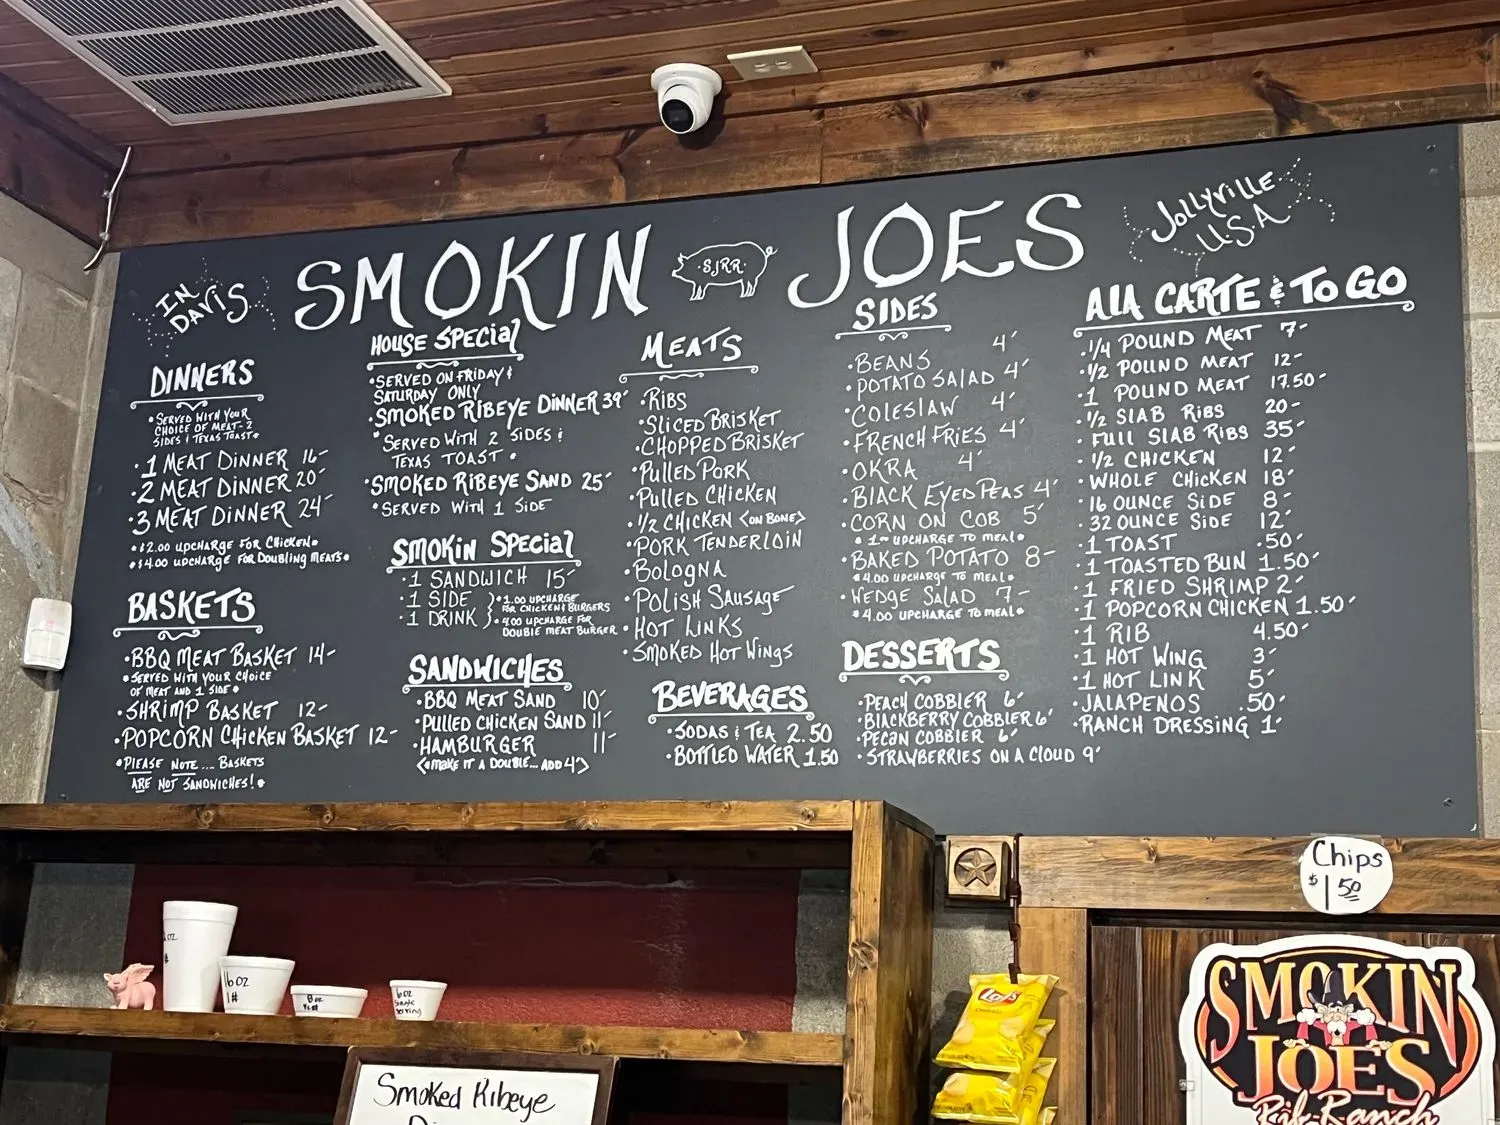 IN
DAVIS
SMOKIN
SJRR
JOES
Jollyville
USA
DINNERS
• SERVED WITH YOUR
CHOICE OF MEAT- 2
SIDES & TEXAS TOAST •
• 1 MEAT DINNER 16-
• 2 MEAT DINNER 20-
• 3 MEAT DINNER 24-
• $2.00 UPCHARGE FOR CHICKEN •
• $4.00 UPCHARGE FOR DOUBLING MEATS •
BASKETS
• BBQ MEAT BASKET 14-
• SERVED WITH YOUR CHOICE
OF MEAT AND 1 SIDE •
• SHRIMP BASKET 12-
• POPCORN CHICKEN BASKET 12-
• PLEASE NOTE.... BASKETS
ARE NOT SANDWICHES! •
HOUSE SPECIAL
• SERVED ON FRIDAY &
SATURDAY ONLY
• SMOKED RIBEYE DINNER 39-
• SERVED WITH 2 SIDES &
TEXAS TOAST •
• SMOKED RIBEYE SAND 25-
• SERVED WITH 1 SIDE
SMOKIN SPECIAL
• 1 SANDWICH 15-
• 1 SIDE
• 1 DRINK
• 1.00 UPCHARGE
FOR CHICKEN & BURGERS
• 4.00 UPCHARGE FOR
DOUBLE MEAT BURGER
SANDWICHES
• BBQ MEAT SAND 10-
• PULLED CHICKEN SAND 11-
• HAMBURGER 11-
<• MAKE IT A DOUBLE... ADD 4-'>
MEATS
• RIBS
• SLICED BRISKET
• CHOPPED BRISKET
• PULLED PORK
• PULLED CHICKEN
• 1/2 CHICKEN <ON BONE>
• PORK TENDERLOIN
• BOLOGNA
• POLISH SAUSAGE
• HOT LINKS
• SMOKED HOT WINGS
BEVERAGES
• SODAS & TEA 2.50
• BOTTLED WATER 1.50
SIDES
• BEANS 4-
• POTATO SALAD 4-
• COLESLAW 4-
• FRENCH FRIES 4-
• OKRA 4-
• BLACK EYED PEAS 4-
• CORN ON COB 5-
• 1- UPCHARGE TO MEAL •
• BAKED POTATO 8-
• 4.00 UPCHARGE TO MEAL •
• WEDGE SALAD 7-
• 4.00 UPCHARGE TO MEAL •
DESSERTS
• PEACH COBBLER 6-
• BLACKBERRY COBBLER 6-
• PECAN COBBLER 6-
• STRAWBERRIES ON A CLOUD 9-
ALA CARTE & TO GO
• 1/4 POUND MEAT 7-
• 1/2 POUND MEAT 12-
• 1 POUND MEAT 17.50-
• 1/2 SLAB RIBS 20-
• FULL SLAB RIBS 35-
• 1/2 CHICKEN 12-
• WHOLE CHICKEN 18-
• 16 OUNCE SIDE 8-
• 32 OUNCE SIDE 12-
• 1 TOAST .50-
• 1 TOASTED BUN 1.50-
• 1 FRIED SHRIMP 2-
• 1 POPCORN CHICKEN 1.50-
• 1 RIB 4.50-
• 1 HOT WING 3-
• 1 HOT LINK 5-
• JALAPENOS .50-
• RANCH DRESSING 1-
Chips
$1.50
16 oz
1#
8 oz
6 oz
Single
Serving
Lay's
Smoked Ribeye
SMOKIN
JOES
Rib-Ranch